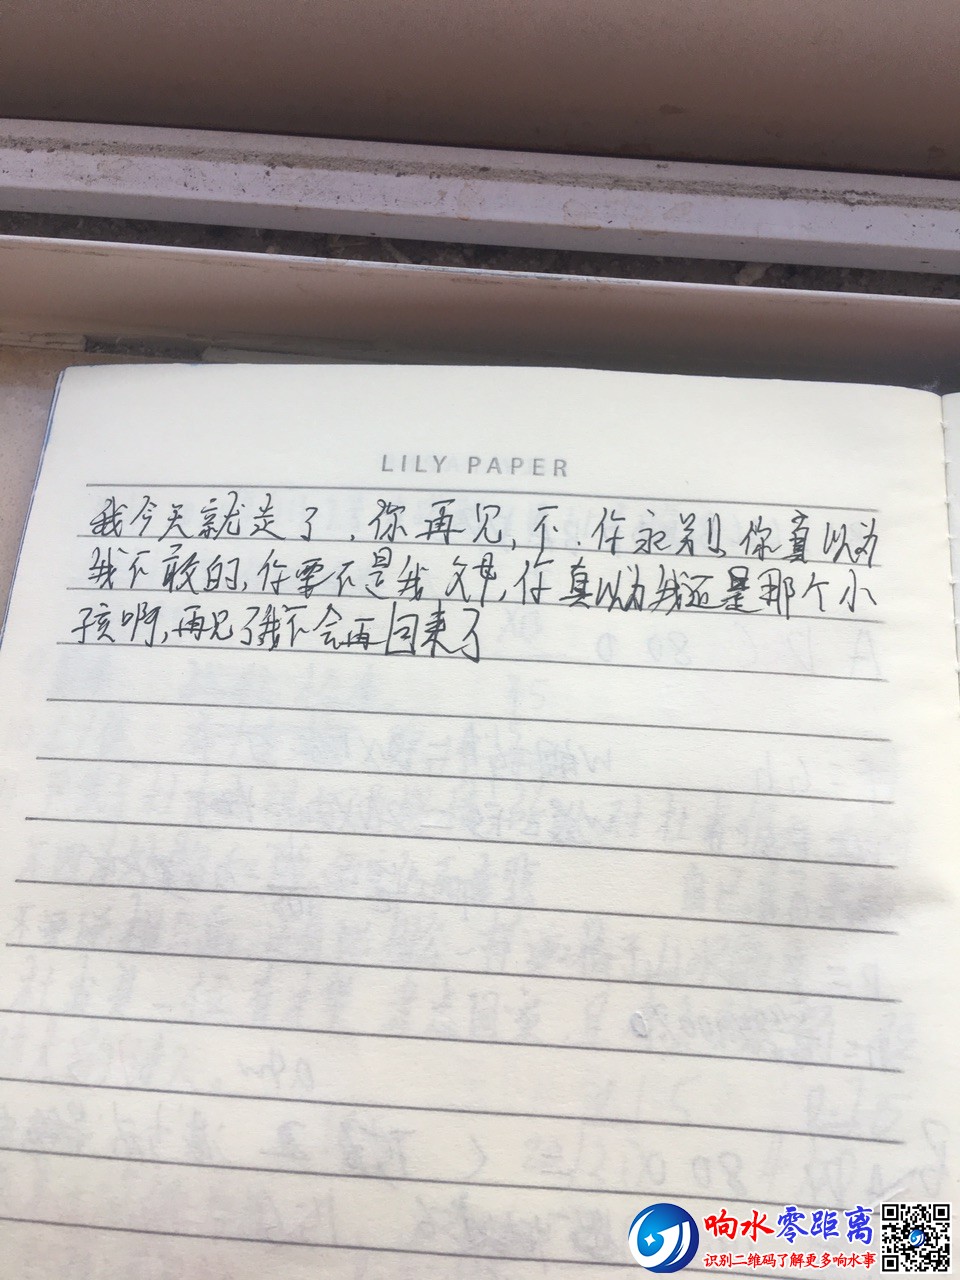 LILY PAPER
我今天就走了，你再见，不.你永别，你真以为
我不敢的，你要不是我父母，你真以为我还是那个小
孩啊，再见了我不会再回来了
响水零距离
识别二维码了解更多响水事